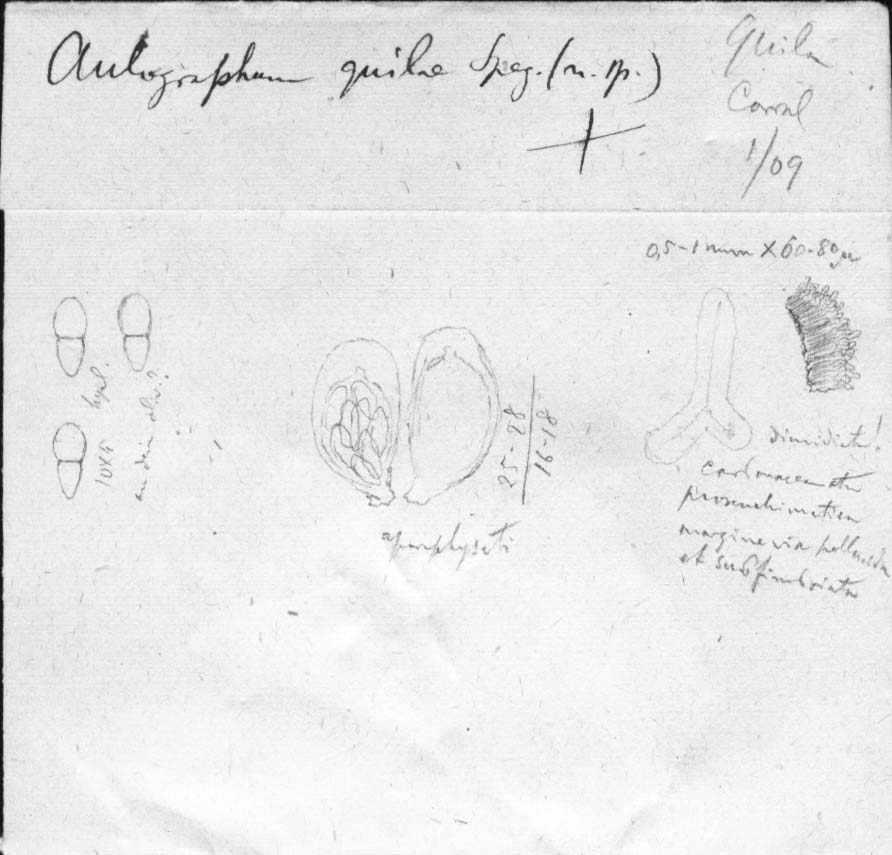 Aulographum quilae Speg. (n. sp.)
Quila
Corral
1/09
0,5-1 mm X 60-80 µ
hyal.
10x4
an dein oliv.?
25-28
16-18
aparaphysati
dimidiata!
carbonacea atra
prosenchimatica
margine vix pellucida
et subfimbriata